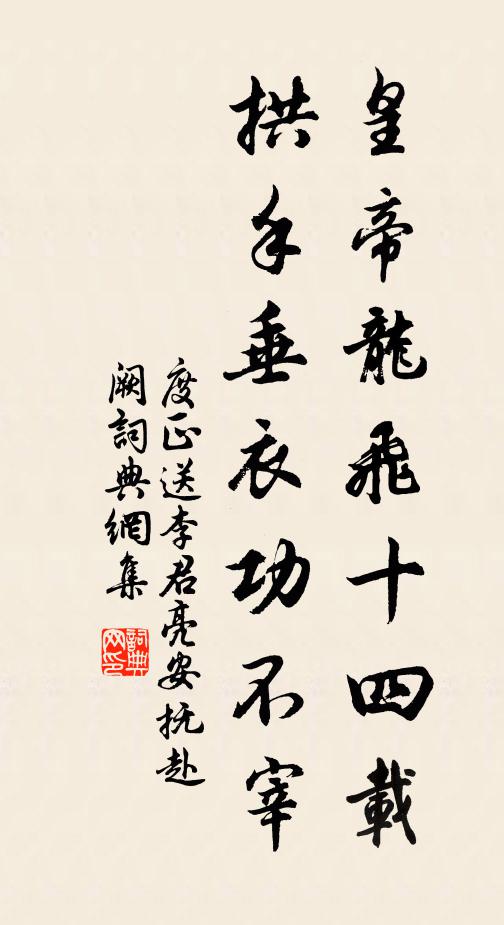 皇帝龍飛十四載
拱手垂衣功不宰
度正送李君亮安抚赴
阙詞典網集
詞典
网印